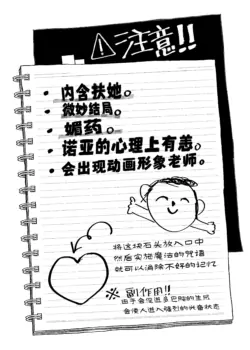 ⚠注意!!
・内含扶她。
・微妙结局。
・媚药。
・诺亚的心理上有恙。
・会出现动画形象老师。
将这块石头放入口中
然后实施魔法的咒语
就可以消除不好的记忆
※ 副作用!!
由于会促进多巴胺的生成
会使人进入强烈的兴奋状态